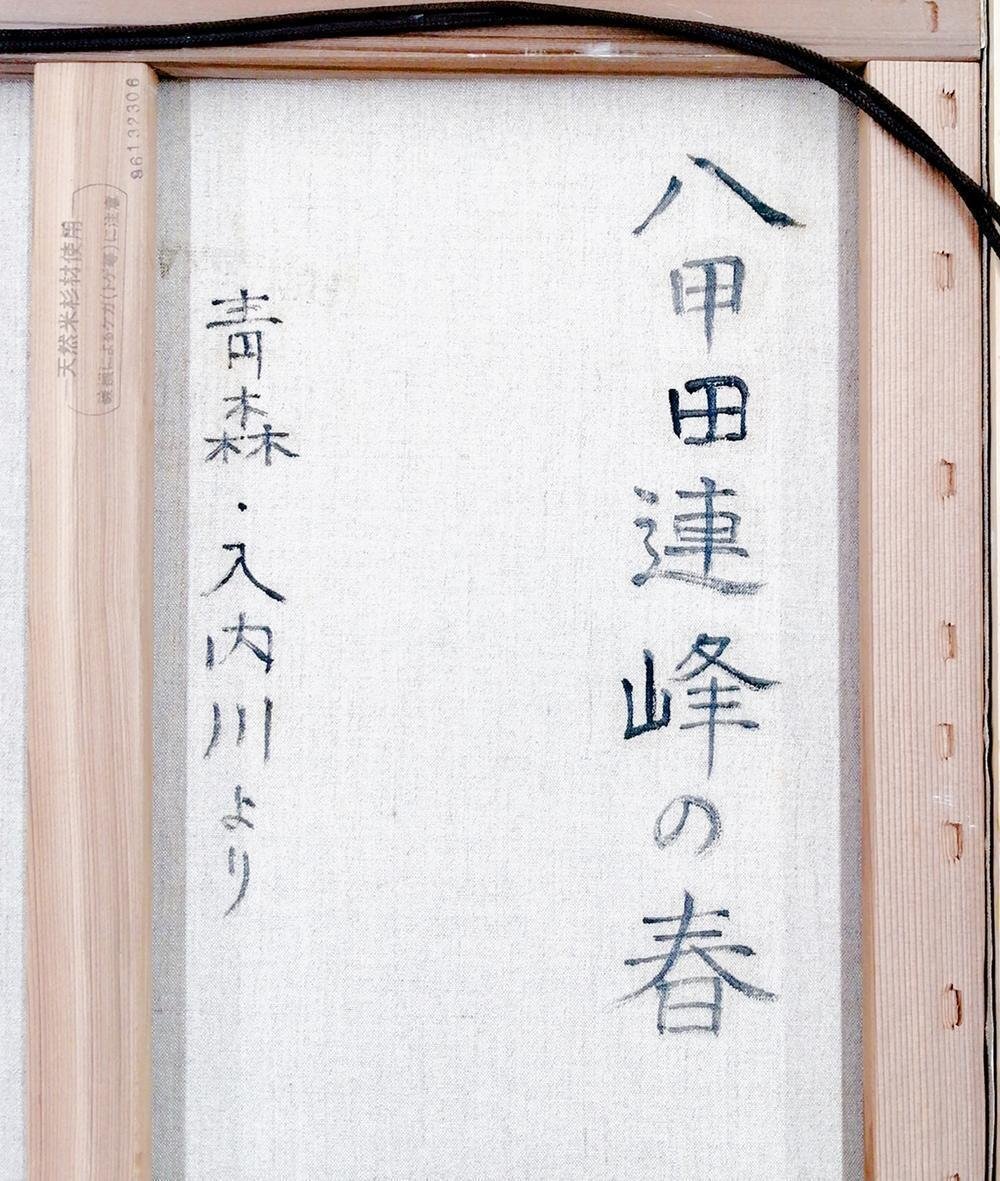 八甲田連峰の春
青森・入内川より
86132306
天然米杉材使用
破損によるケガ(トゲ等)に注意